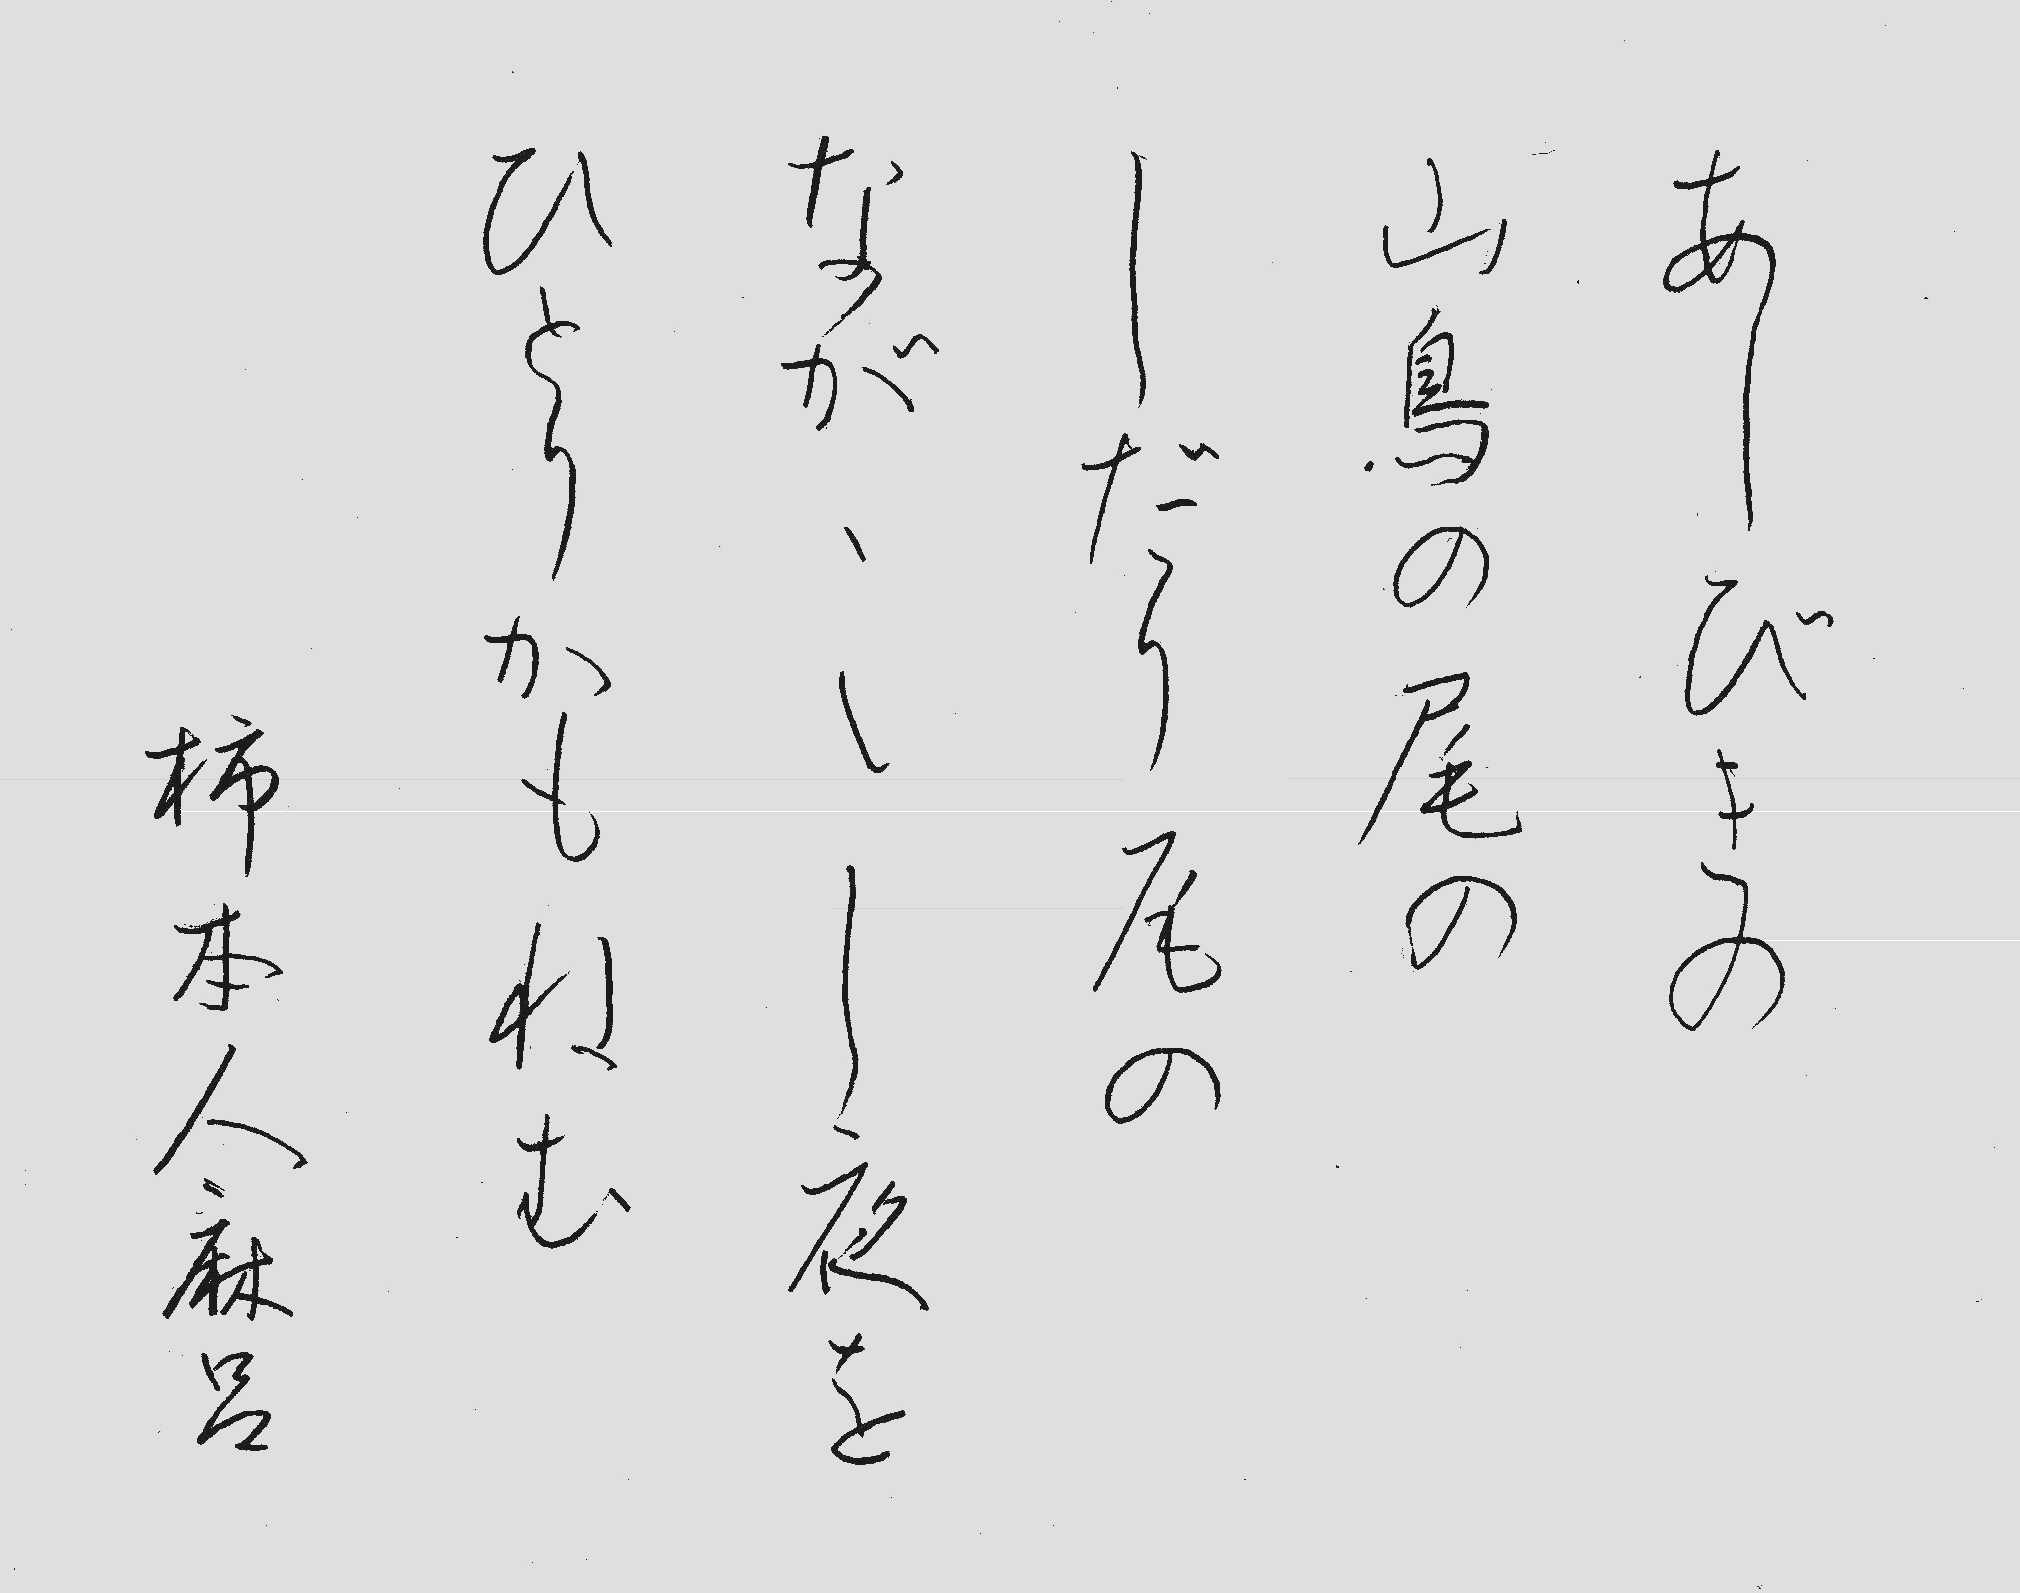 あしびきの
山鳥の尾の
しだり尾の
なが〱し夜を
ひとりかもねむ
柿本人麻呂